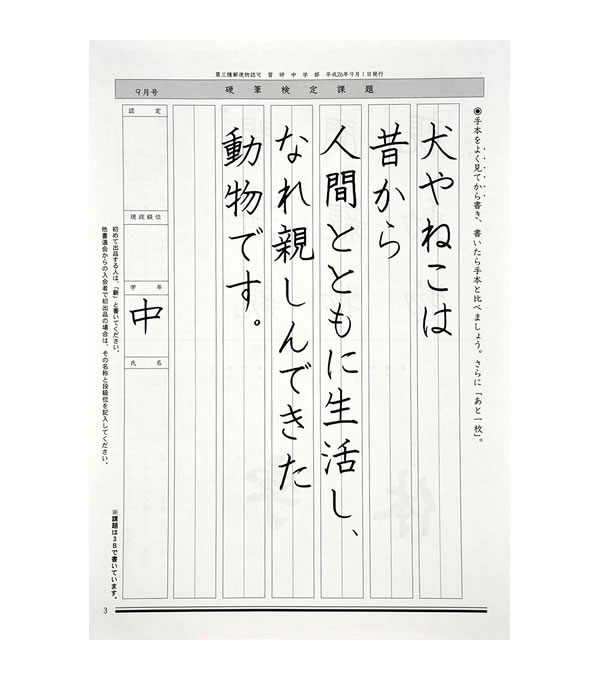 第三種郵便物認可　習　研　中　学　部　平成26年9月1日発行
9月号
硬筆検定課題
◉手本をよく見てから書き、書いたら手本と比べましょう。さらに「あと一枚」。
犬やねこは
昔から
人間とともに生活し、
なれ親しんできた
動物です。
認定
現段級位
学年
中
氏名
初めて出品する人は、「新」と書いてください。
他書道会からの入会者で初出品の場合は、その名称と段級位を記入してください。
※課題は3Bで書いています。
3